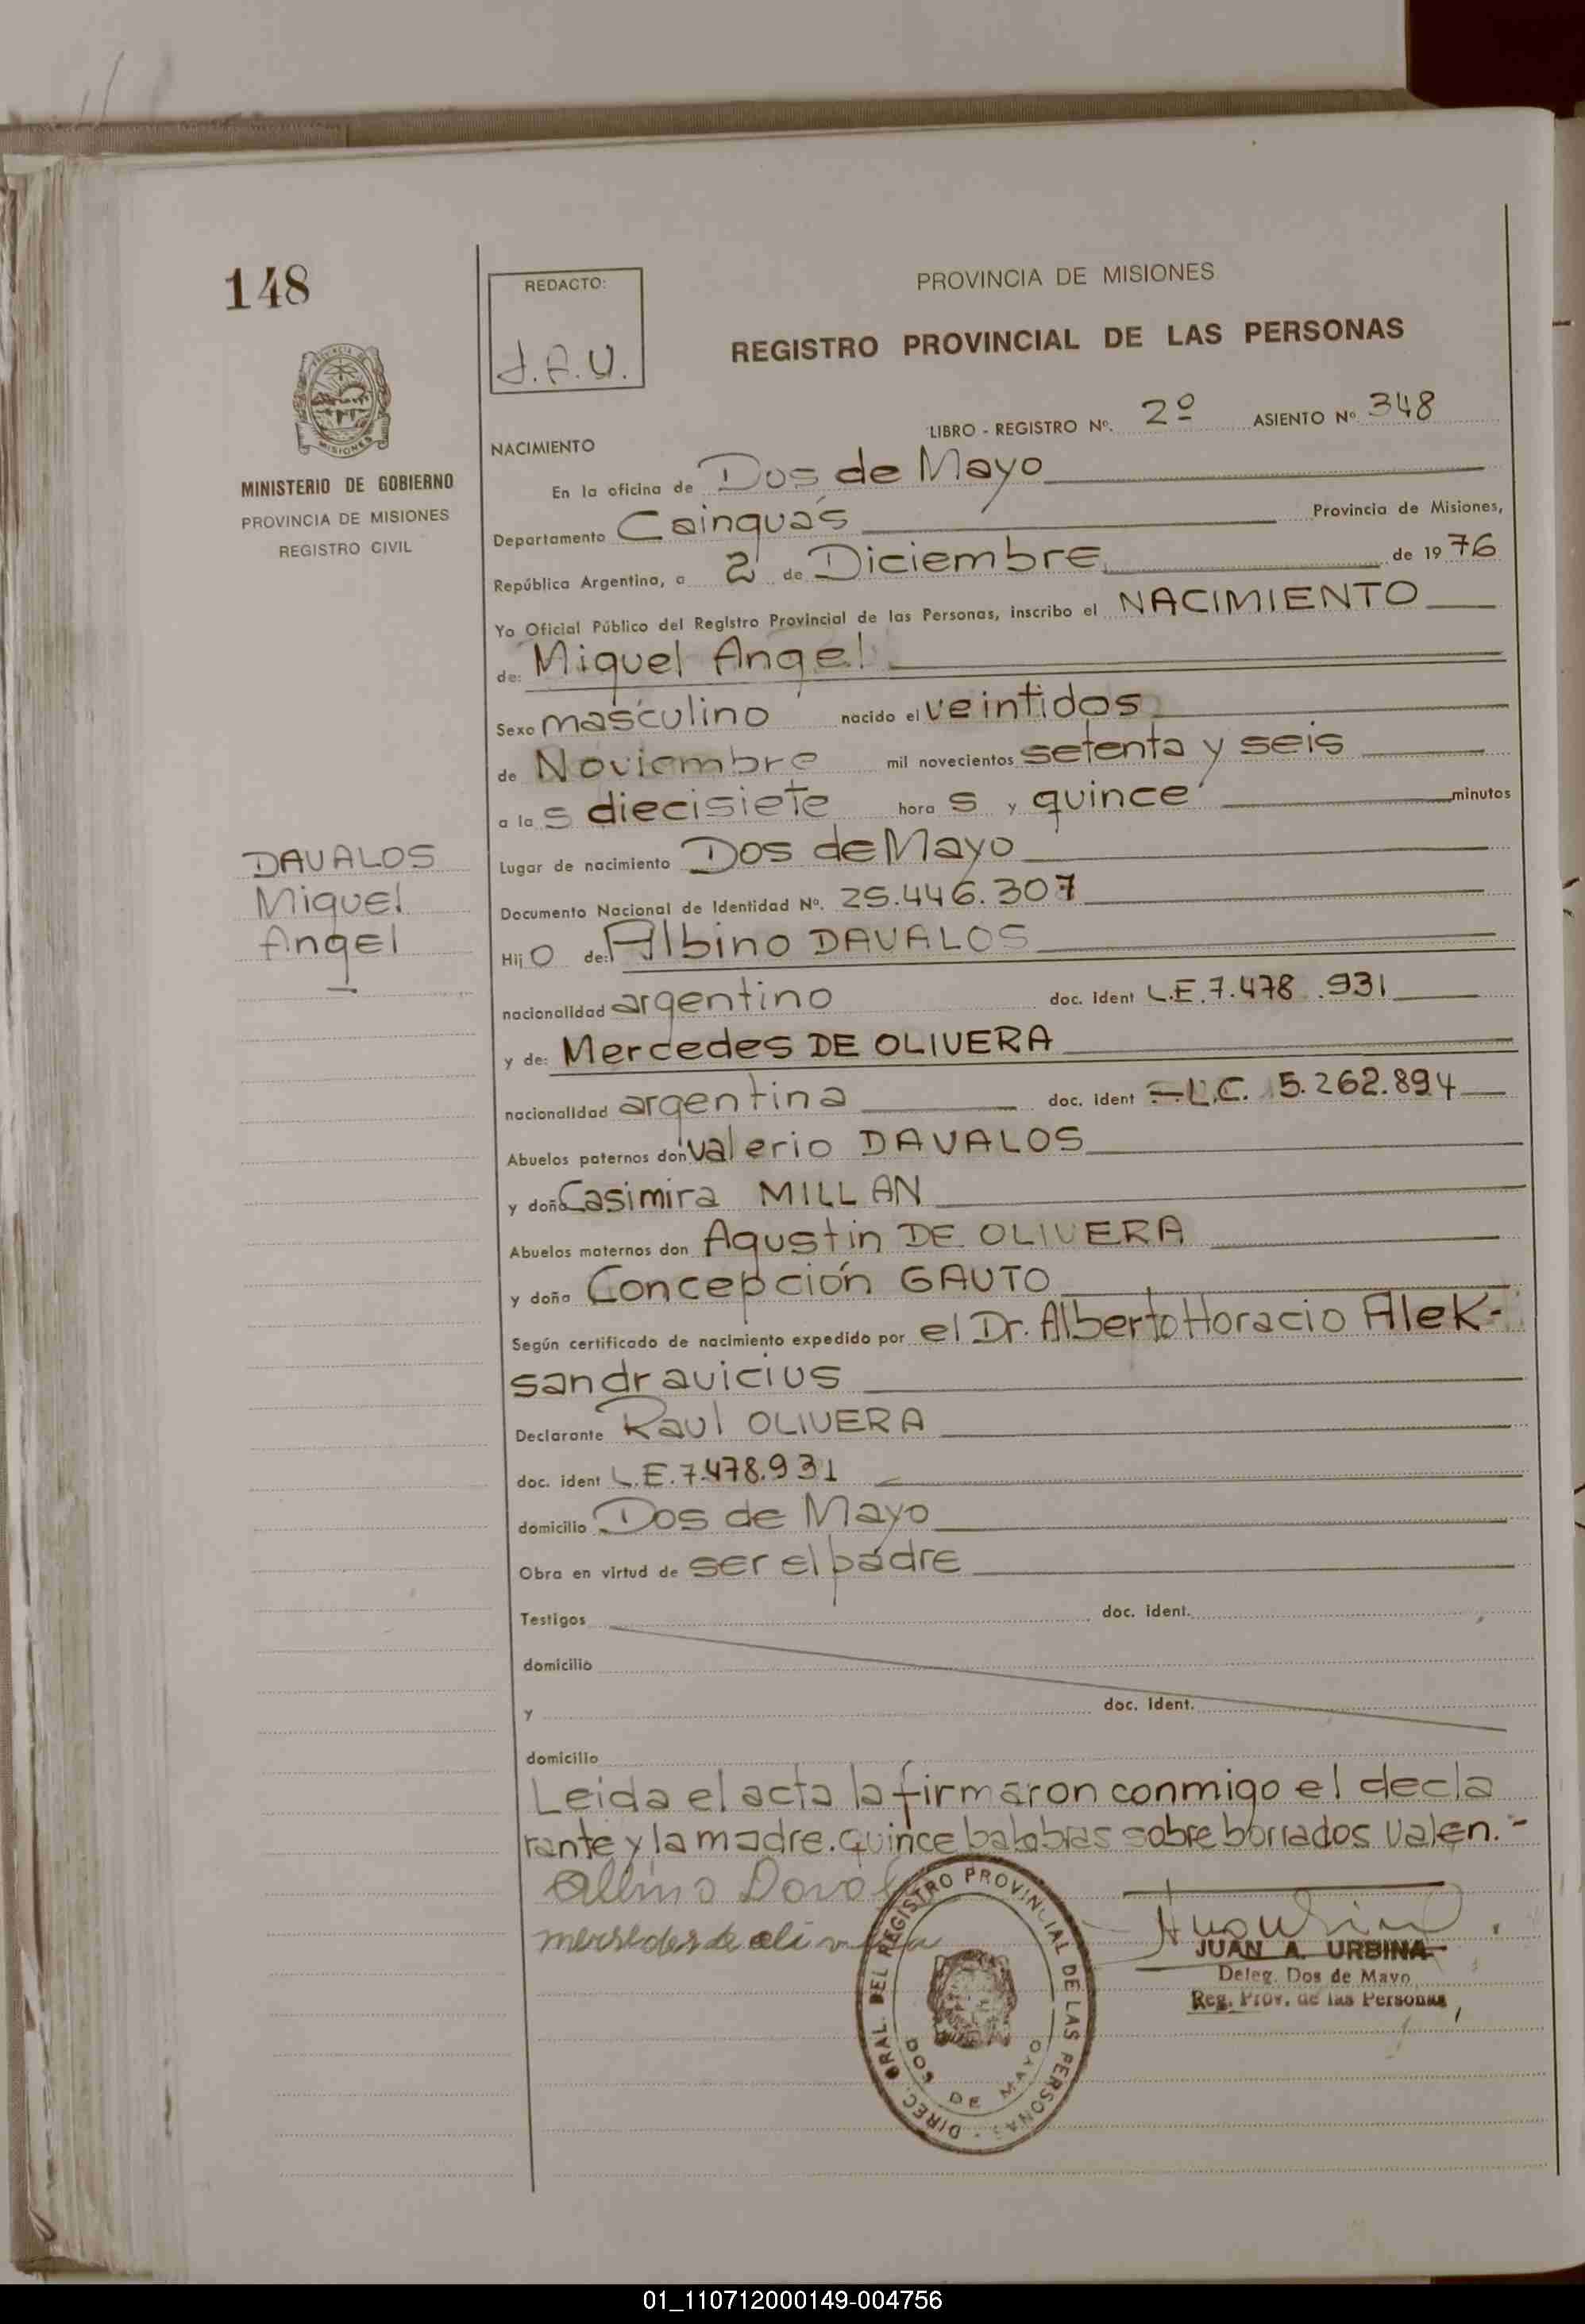 148
REDACTO:
J.A.U.
PROVINCIA DE MISIONES
REGISTRO PROVINCIAL DE LAS PERSONAS
MINISTERIO DE GOBIERNO
PROVINCIA DE MISIONES
REGISTRO CIVIL
LIBRO - REGISTRO Nº. 2º ASIENTO Nº 348
NACIMIENTO
En la oficina de Dos de Mayo
Departamento Cainguás Provincia de Misiones,
República Argentina, a 2 de Diciembre de 1976
Yo Oficial Público del Registro Provincial de las Personas, inscribo el NACIMIENTO
de: Miguel Angel
Sexo masculino nacido el veintidos
de Noviembre mil novecientos setenta y seis
a las diecisiete horas y quince minutos
Lugar de nacimiento Dos de Mayo
DAVALOS
Miguel
Angel
Documento Nacional de Identidad Nº. 25.446.307
Hijo de: Albino DAVALOS
nacionalidad argentino doc. ident L.E. 7.478.931
y de: Mercedes DE OLIVERA
nacionalidad argentina doc. ident L.C. 5.262.894
Abuelos paternos don Valerio DAVALOS
y doña Casimira MILLAN
Abuelos maternos don Agustin DE OLIVERA
y doña Concepción GAUTO
Según certificado de nacimiento expedido por el Dr. Alberto Horacio Alek-
sandravicius
Declarante Raul OLIVERA
doc. ident L.E. 7.478.931
domicilio Dos de Mayo
Obra en virtud de ser el padre
Testigos doc. ident.
domicilio
y doc. ident.
domicilio
Leida el acta la firmaron conmigo el decla
rante y la madre. quince palabras sobre borrados valen.-
Albino Daval
mersedes de olivera
DIREC. GRAL. DEL REGISTRO PROVINCIAL DE LAS PERSONAS
DOS DE MAYO
JUAN A. URBINA
Deleg. Dos de Mayo
Reg. Prov. de las Personas
01_110712000149-004756